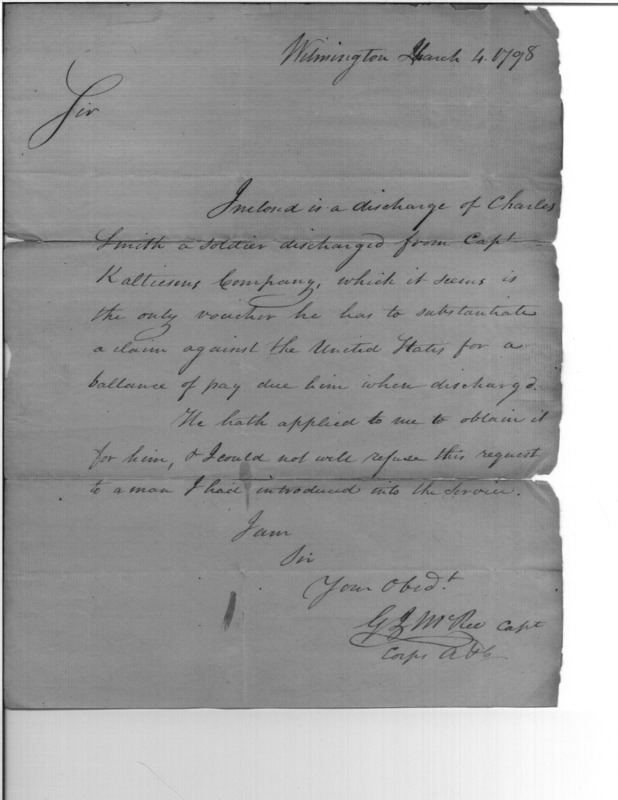 Wilmington March 4. 1798
Sir
Inclosd is a discharge of Charles
Smith a soldier discharged from Capt
Kalticsens Company, which it seems is
the only voucher he has to substantiate
a claim against the United States for a
ballance of pay due him when dischargd.
He hath applied to me to obtain it
for him, & I could not well refuse this request
to a man I had introduced into the Service.
I am
Sir
Your Obedt
G J McRee Capt
Corps A & E